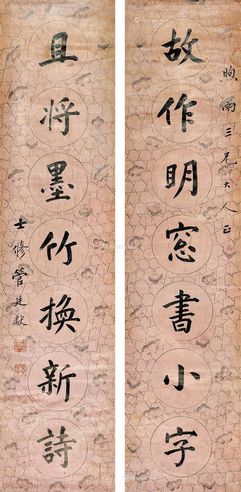 故作明窓書小字
昫南三兄大人正
且將墨竹換新詩
士修管廷獻